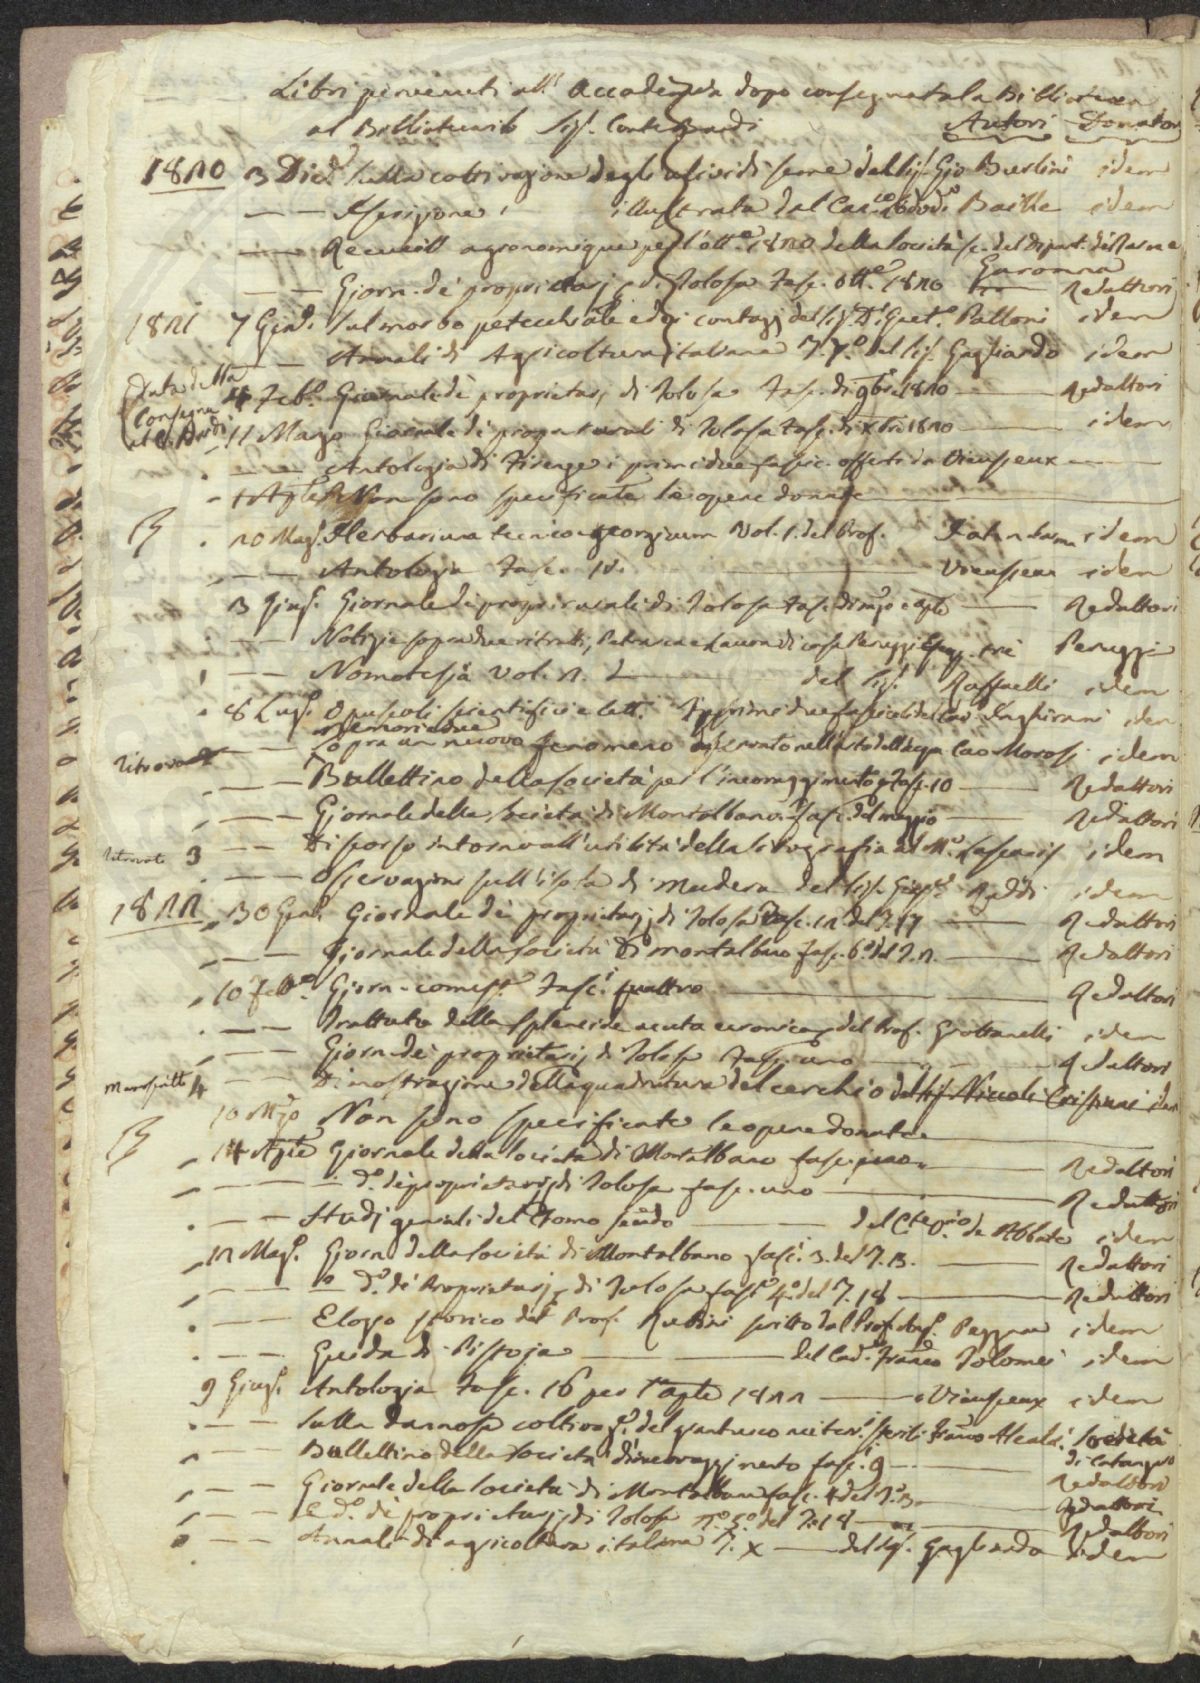 Libri pervenuti all' Accademia dopo consegnata la Biblioteca
al Bibliotecario Sig. Conte Bardi Autori Donatori
1820 3 Dic. Sulla coltivazione degli ulivi di seme del Sig. Gio Burlini idem
— — Iserizione, illustrata dal Cav. Lodov. Baille idem
— — Recueill agronomique per l'Ott.e 1820 della Società &c. del Dipart. de
Garonna
— — Giorn. de' proprietarj di Tolosa Fasc. Ott.e 1820 Redattori
1821 7 Gen. Sul morbo petecchiale e dei contagj del Sig. D. Gaet.o Palloni idem
— — Annali di Agricoltura italiana T. 7.o del Sig. Gagliardo idem
Data della
Consegna
al C. Bardi
4 Feb. Giornale de' proprietarj di Tolosa Fasc. di 9bre 1820 — Redattori
11 Marzo Giornale de' propr. rurali di Tolosa Fasc. di Xbre 1820 — idem
— — Antologia di Firenze i primi due fascic. offerti da Vieusseux —
1 Aple Non sono specificate le opere donate
20 Mag. Herbarium tecnico georgicum Vol. 1. del Prof. idem
— — Antologia Fasc. IV. — Vieusseux idem
3 Giug. Giornale de' propri rurali di Tolosa Fasc. di mzo e aple — Redattori
— — Notizie sopra due ritratti, Petrarca e Laura di casa Peruzzi Peruzzi
— — Nomotesia Vol. 2. del Sig. Raffaelli idem
8 Lug. Opuscoli scientifici e lett. I primi due fascicoli del Cav. Inghirami idem
Memorie due
Ritrovate — Sopra un nuovo fenomeno osservato nell'urto dell'acqua Cav Morosi idem
— — Bullettino della Società per l'incoraggimento Fasc. 10 — Redattori
— — Giornale della Società di Montalbano Fasc. del maggio — Redattori
Ritrovato 3 — Discorso intorno all'utilità della litografia del M.o Lascaris idem
— — Osservazioni sull'isola di Madera del Sig. Gius.e Raddi idem
1822 30 Gen. Giornale de' proprietarj di Tolosa Fasc. 12. del T. 17 — Redattori
— — Giornale della Società di Montalbano fasc. 6.o del T. 2. — Redattori
10 Febb. Giorn. Fasc. quattro — Redattori
— — Trattato della Splenitide acuta e cronica del Prof. Grottanelli idem
— — Giorn. de' proprietarj di Tolosa Fasc. uno — Redattori
Manoscritto 4 — Dimostrazione della quadratura del cerchio del Sig. Niccola Crispini idem
10 Mzo Non sono specificate le opere donate
14 Aple Giornale della Società di Montalbano fasc. uno — Redattori
— — d.o de' proprietarj di Tolosa fasc. uno — Redattori
— — Studj geniali del Tomo secondo — del C.te de Abbate idem
12 Mag. Giorn. della Società di Montalbano fasc. 3. del T. 3. — Redattori
— — d.o de' Proprietarj di Tolosa fasc. 4.o del T. 18 — Redattori
— — Elogio storico del Prof. Rubini scritto dal Prof. idem
— — Guida di Pistoja — del Cav. Franc.o Tolomei idem
9 Giug. Antologia Fasc. 16 per l'aple 1822 — Vieusseux idem
— — Sulla dannosa coltivaz.e del granturco
Società
di Catanzaro
— — Bullettino della Società d'incoraggimento fasc. 9 — Redattori
— — Giornale della Società di Montalbano fasc. 4 del T. 3. — Redattori
— — e d.o de' proprietarj di Tolosa n.o 5.o del T. 18 — Redattori
— — Annali di agricoltura italiana T. X — del Sig. Gagliardo idem